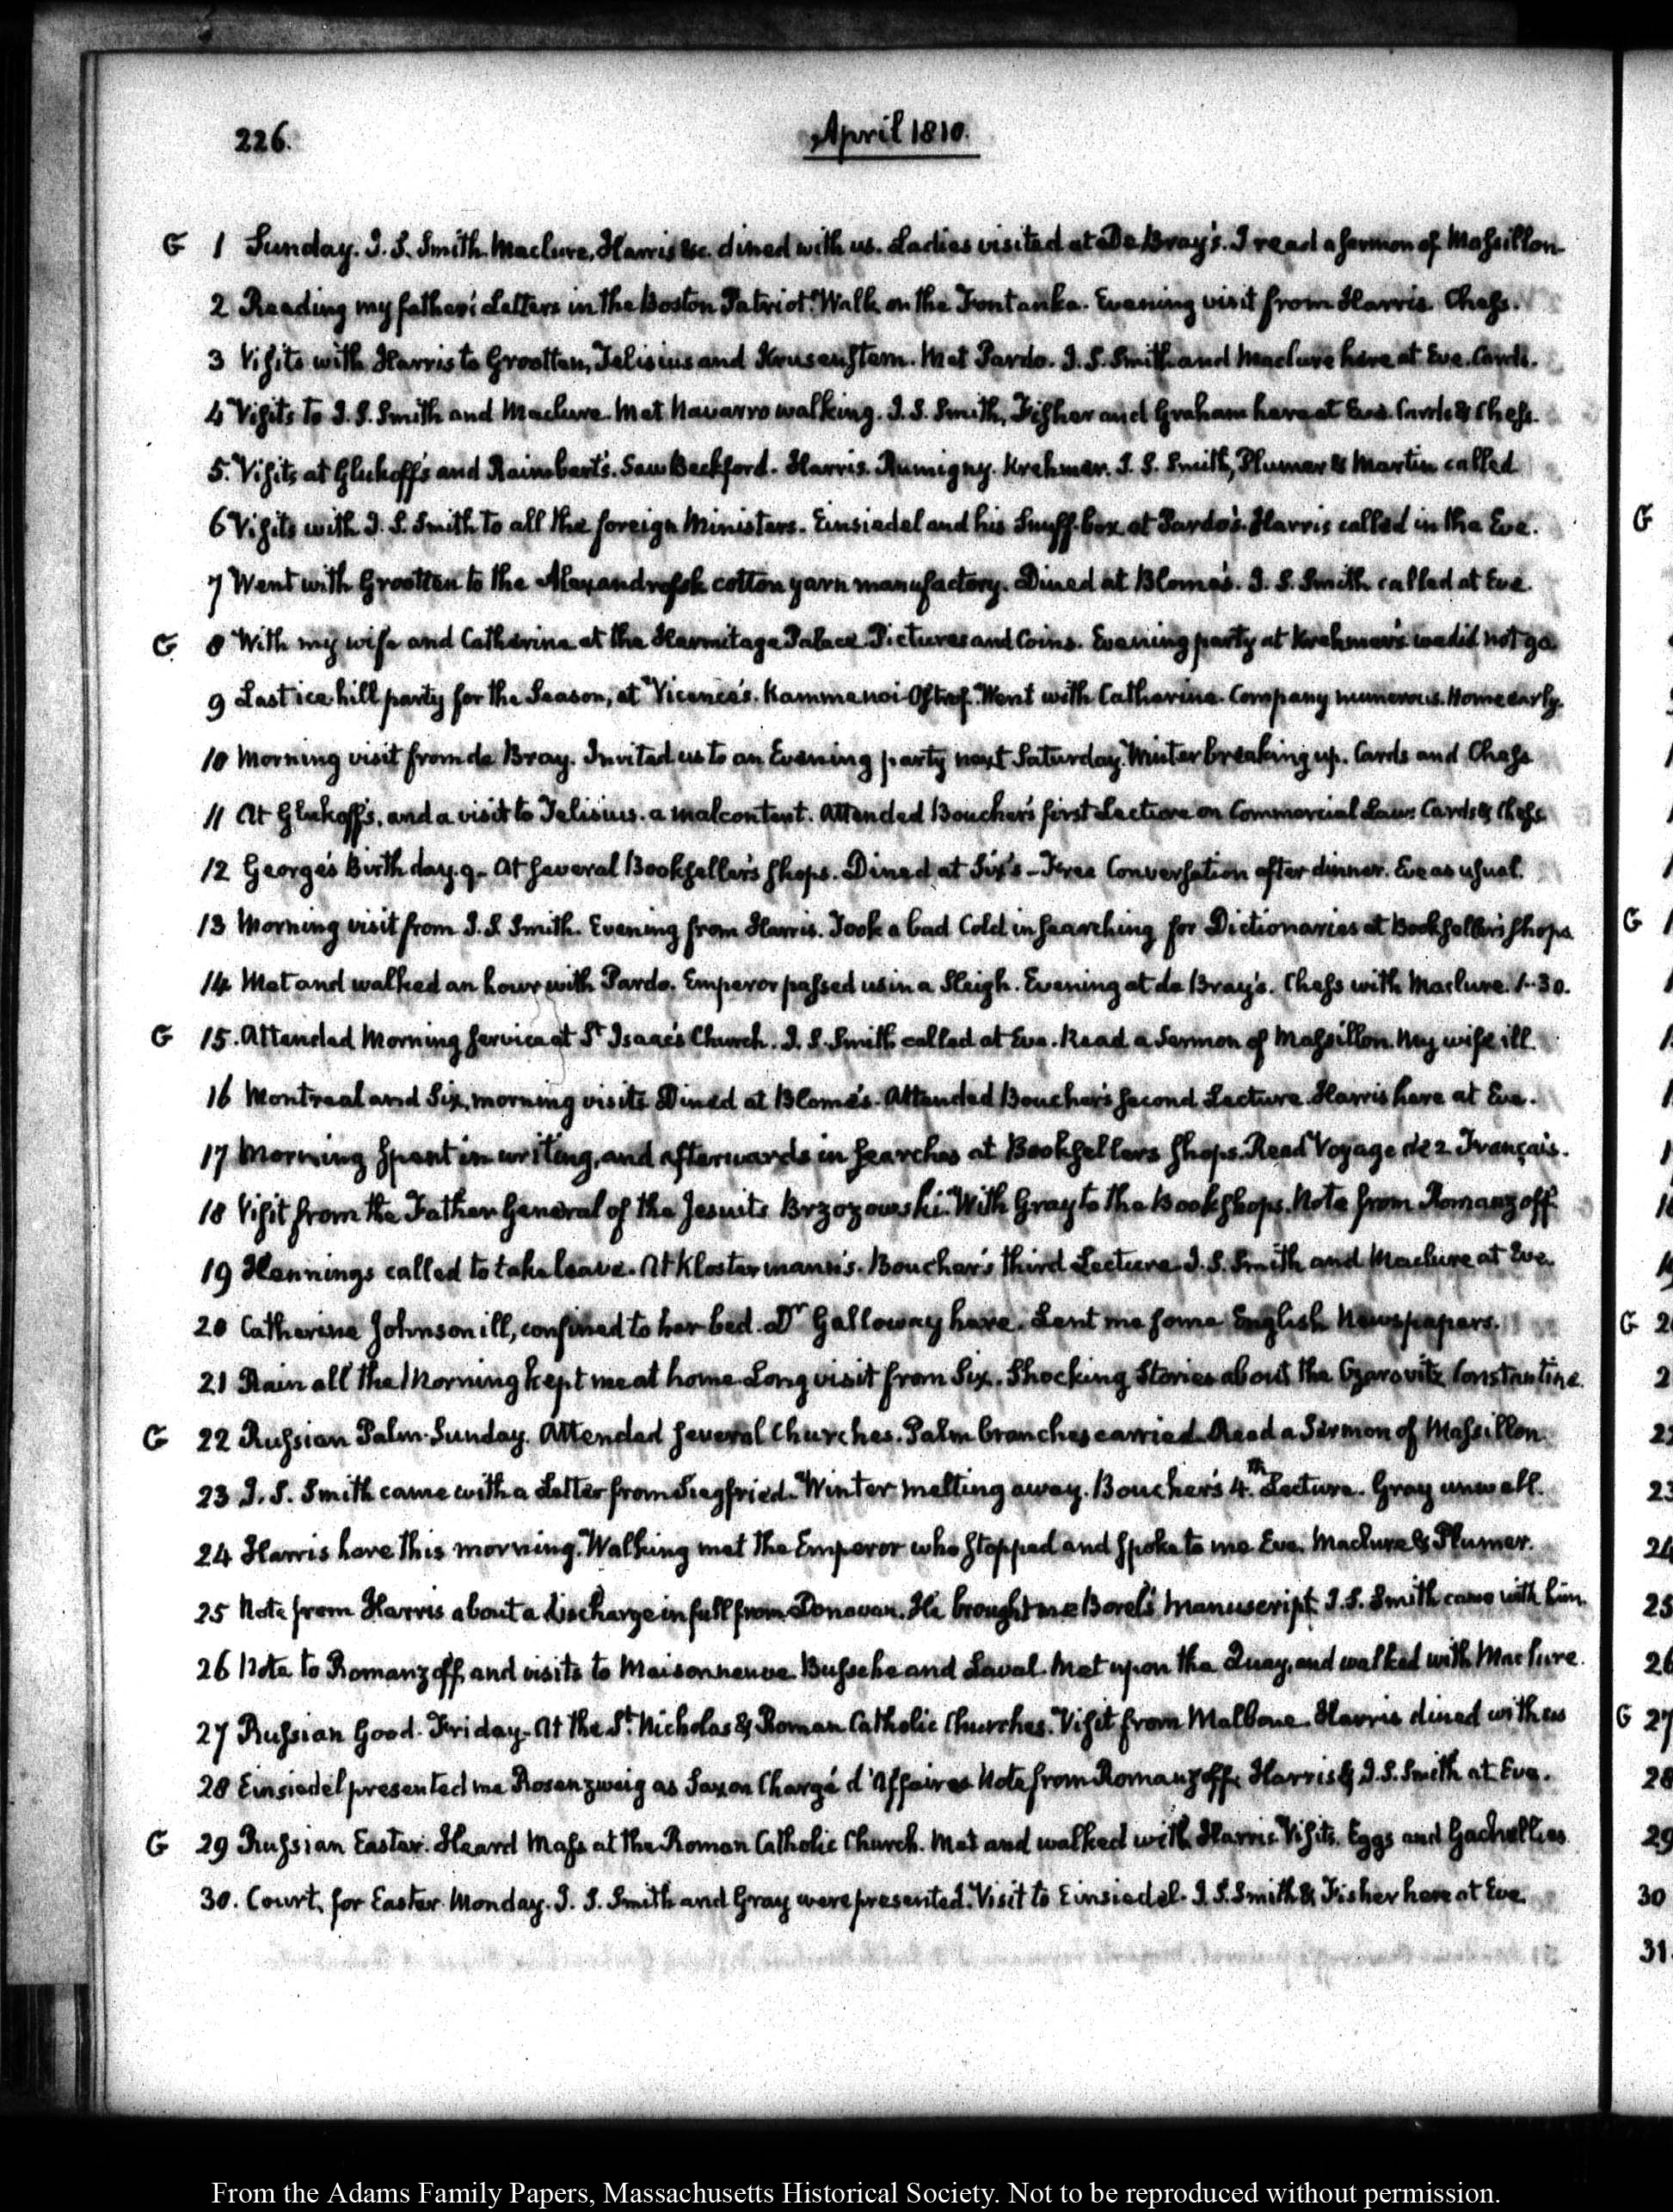 226.
April 1810.
G 1 Sunday. J. S. Smith. Maclure, Harris &c. dined with us. Ladies visited at De Bray's. I read a sermon of Massillon.
2 Reading my father's Letters in the Boston Patriot. Walk on the Fontanka. Evening visit from Harris. Chess.
3 Visits with Harris to Grootten, Jelisius and Krusenstern. Met Pardo. J. S. Smith and Maclure here at Eve. Cards.
4 Visits to J. S. Smith and Maclure. Met Navarro walking. J. S. Smith, Fisher and Graham here at Eve. Cards & Chess.
5. Visits at Glukoff's and Rainsbert's. Saw Beckford. Harris. Rumigny. Krehmer. J. S. Smith, Plumer & Martin called
6 Visits with J. S. Smith to all the foreign Ministers. Einsiedel and his Snuff-box at Pardo's. Harris called in the Eve.
7 Went with Grootten to the Alexandrofsk cotton yarn manufactory. Dined at Blome's. J. S. Smith called at Eve.
G. 8 With my wife and Catherine at the Hermitage Palace. Pictures and Coins. Evening party at Krehmer's we did not go
9 Last ice hill party for the Season, at Vicence's. Kammenoi-Ostrof. Went with Catherine. Company numerous. Home early.
10 Morning visit from de Bray. Invited us to an Evening party next Saturday. Winter breaking up. Cards and Chess
11 At Glukoff's, and a visit to Jelisius. a malcontent. Attended Boucher's first Lecture on Commercial Law. Cards & Chess
12 George's Birth day. 9. At several Bookseller's shops. Dined at Six's - Free Conversation after dinner. Eve as usual.
13 Morning visit from J. S. Smith. Evening from Harris. Took a bad Cold in searching for Dictionaries at Bookseller's shops
14 Met and walked an hour with Pardo. Emperor passed us in a Sleigh. Evening at de Bray's. Chess with Maclure. 1.30.
G 15. Attended Morning service at St Isaac's Church. J. S. Smith called at Eve. Read a Sermon of Massillon. My wife ill.
16 Montreal and Six, morning visits. Dined at Blome's. Attended Boucher's second Lecture. Harris here at Eve.
17 Morning spent in writing, and afterwards in searches at Booksellers shops. Read Voyage de 2 Français.
18 Visit from the Father General of the Jesuits Brzozowski. With Gray to the Bookshops. Note from Romanzoff
19 Hennings called to take leave. At Klostermann's. Boucher's third Lecture. J. S. Smith and Maclure at Eve.
20 Catherine Johnson ill, confined to her bed. Dr Galloway here. Lent me some English Newspapers.
21 Rain all the Morning kept me at home. Long visit from Six. Shocking Stories about the Czarovitz Constantine.
G 22 Russian Palm-Sunday. Attended several Churches. Palm branches carried. Read a Sermon of Massillon.
23 J. S. Smith came with a Letter from Siegfried. Winter melting away. Boucher's 4.th Lecture. Gray unwell.
24 Harris here this morning. Walking met the Emperor who stopped and spoke to me. Eve. Maclure & Plumer.
25 Note from Harris about a discharge in full from Donovan. He brought me Borel's Manuscript. J. S. Smith came with him.
26 Note to Romanzoff, and visits to Maisonneuve. Bussche and Laval. Met upon the Quay, and walked with Maclure.
27 Russian Good-Friday. At the St. Nicholas & Roman Catholic Churches. Visit from Malbone. Harris dined with us
28 Einsiedel presented me Rosenzweig as Saxon Chargé d'Affaires. Note from Romanzoff. Harris & J. S. Smith at Eve.
G 29 Russian Easter. Heard Mass at the Roman Catholic Church. Met and walked with Harris. Visits. Eggs and
30. Court, for Easter Monday. J. S. Smith and Gray were presented. Visit to Einsiedel. J. S. Smith & Fisher here at Eve.
From the Adams Family Papers, Massachusetts Historical Society. Not to be reproduced without permission.